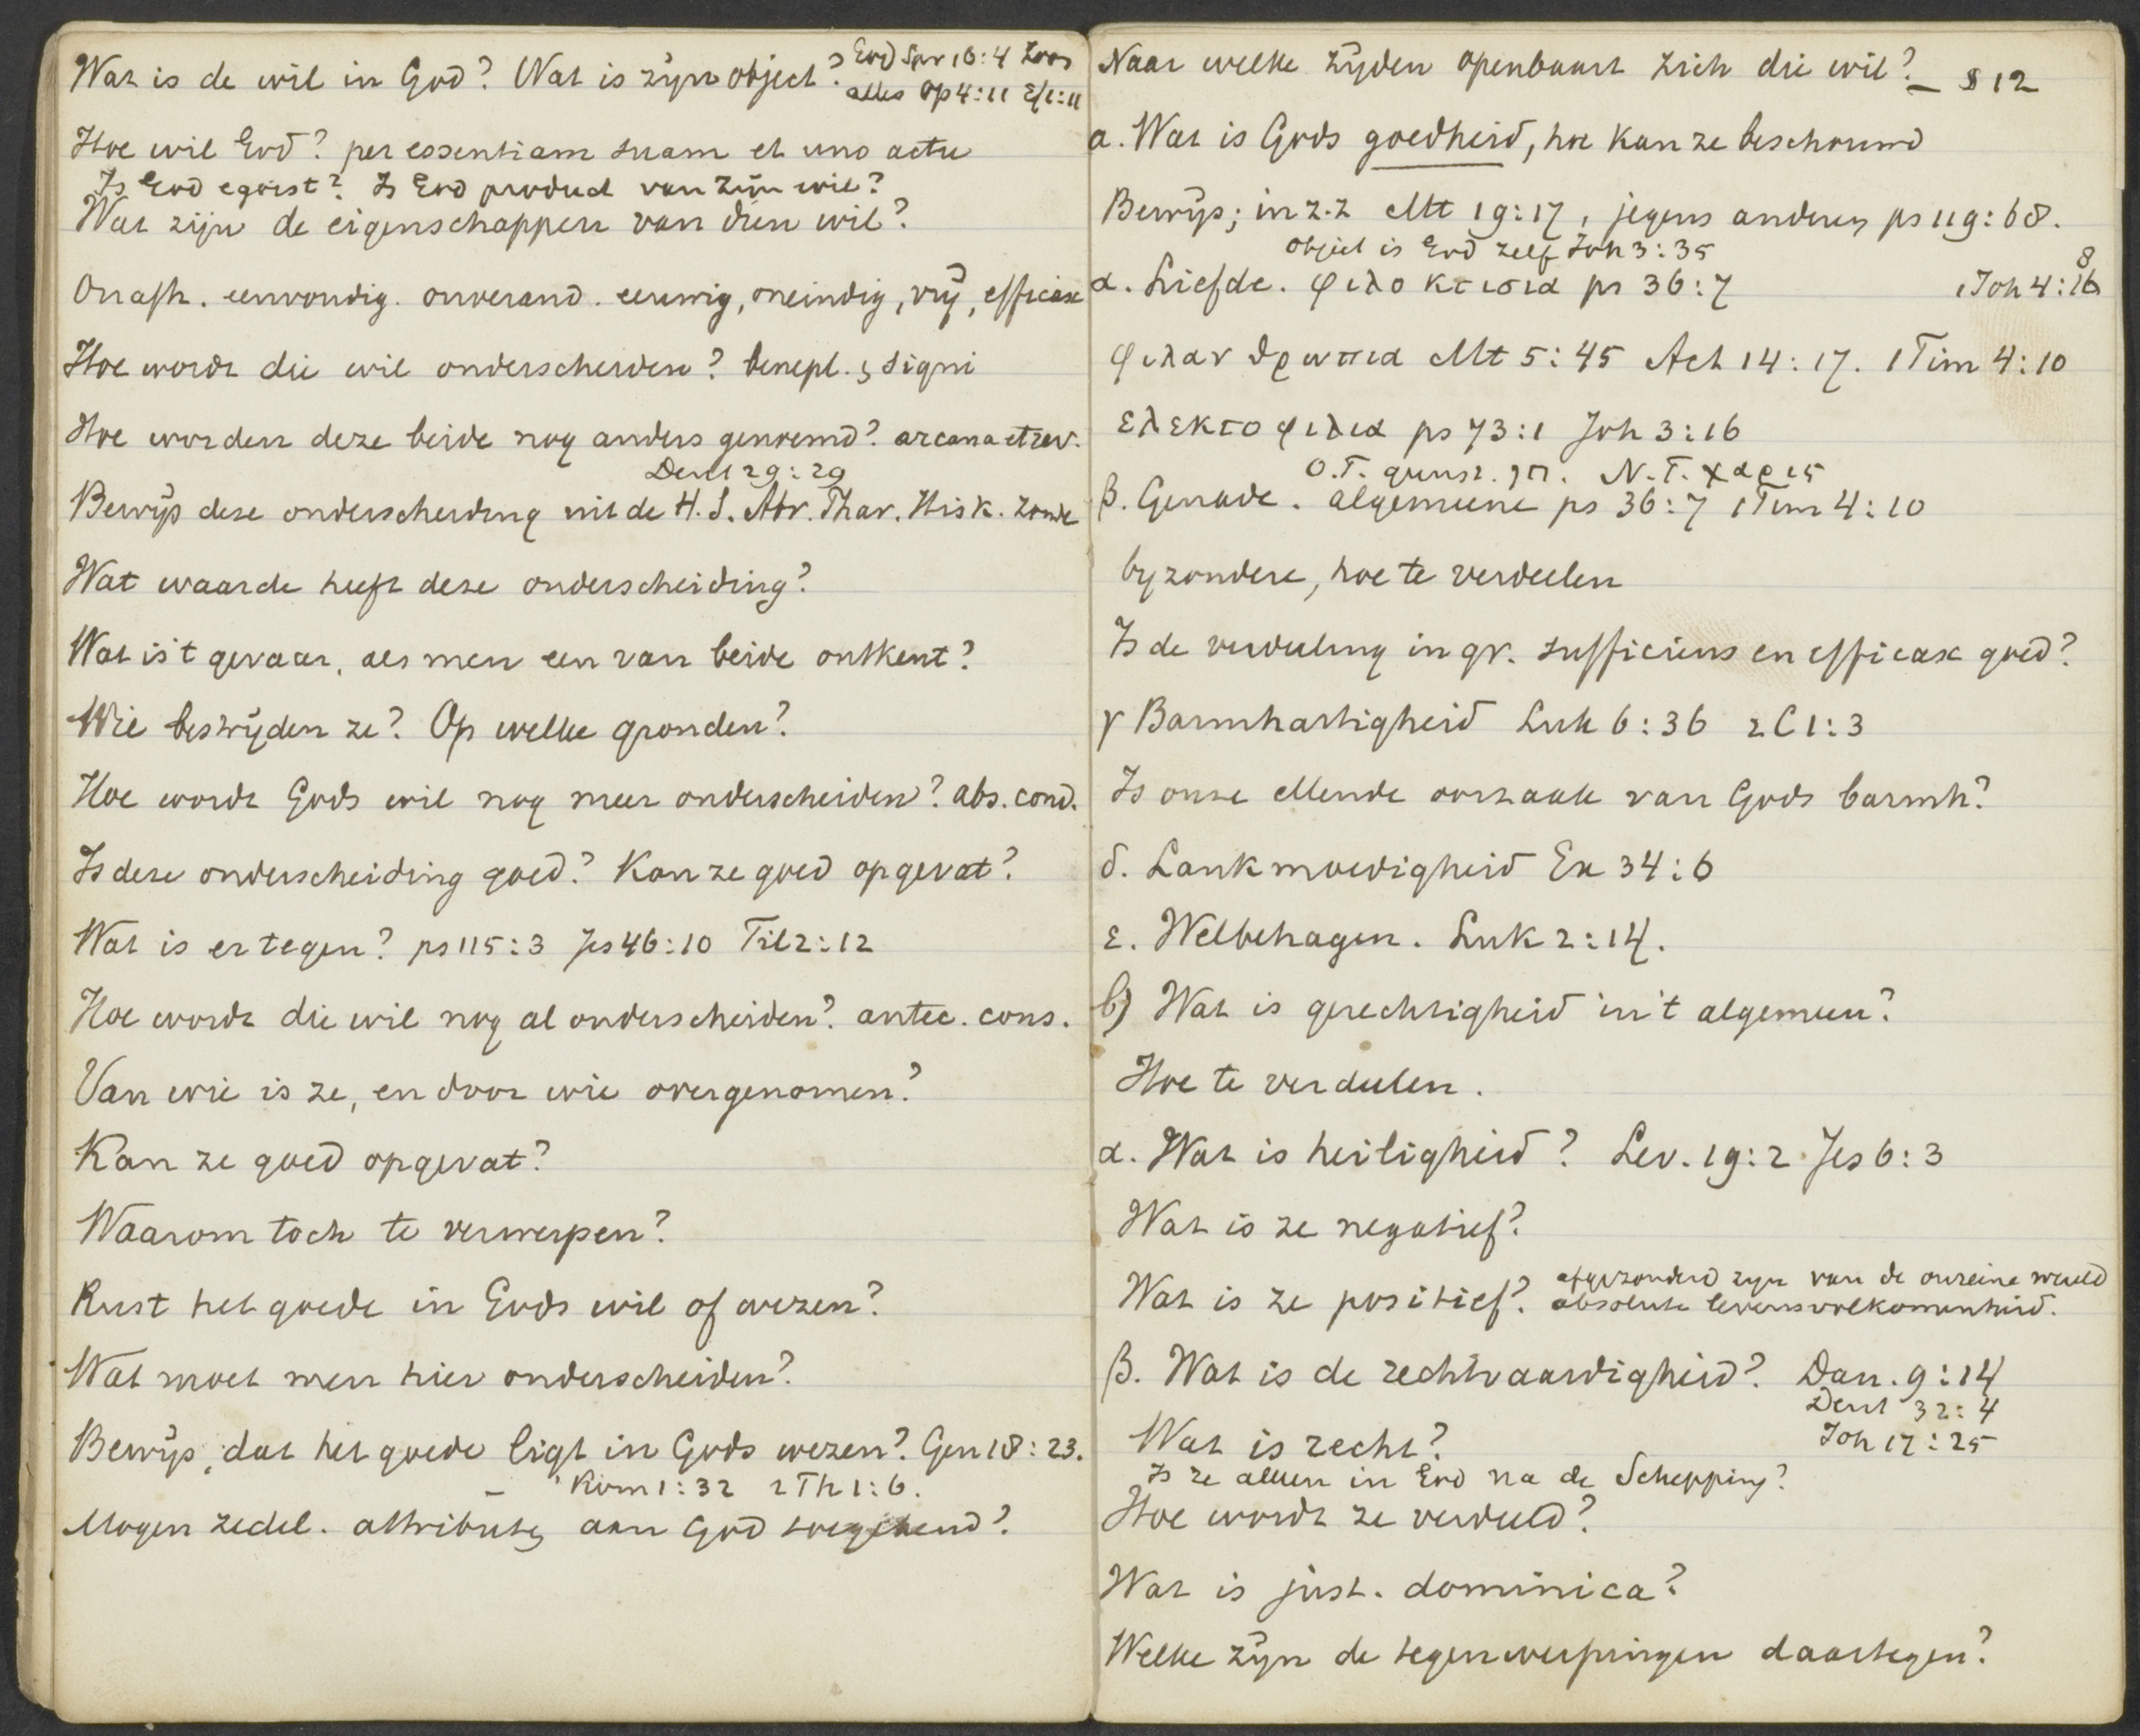 Wat is de wil in God? Wat is zijn object? God Spr 16:4 Zoon
alles Op 4:11 Ef 1:11
Hoe wil God? per essentiam suam et uno actu
Is God egoist? Is God product van zijn wil?
Wat zijn de eigenschappen van dien wil?
Onafh. eenvoudig. onverand. eeuwig, oneindig, vrij, efficax
Hoe wordt die wil onderscheiden? benepl. & signi
Hoe worden deze beide nog anders genoemd? arcana et rev.
Deut 29:29
Bewijs deze onderscheiding uit de H.S. Abr. Phar. Hisk. zonde
Wat waarde heeft deze onderscheiding?
Wat is 't gevaar, als men een van beide ontkent?
Wie bestrijden ze? Op welke gronden?
Hoe wordt Gods wil nog meer onderscheiden? abs. cond.
Is deze onderscheiding goed? Kan ze goed opgevat?
Wat is er tegen? ps 115:3 Jes 46:10 Fil 2:12
Hoe wordt die wil nog al onderscheiden? antec. cons.
Van wie is ze, en door wie overgenomen?
Kan ze goed opgevat?
Waarom toch te verwerpen?
Rust het goede in Gods wil of wezen?
Wat moet men hier onderscheiden?
Bewijs, dat het goede ligt in Gods wezen? Gen 18:23.
Rom 1:32 2 Th 1:6.
Mogen zedel. attributen aan God toegekend?
Naar welke zijden openbaart zich die wil? – § 12
a. Wat is Gods goedheid, hoe kan ze beschouwd
Bewijs; in z.z Mt 19:17, jegens anderen ps 119:68.
object is God zelf Joh 3:35
α. Liefde. φιλοκτισια ps 36:7 1 Joh 4:16 8
φιλανθρωπια Mt 5:45 Act 14:17. 1 Tim 4:10
ελεκτοφιλια ps 73:1 Joh 3:16
O.T. gunst. חן. N.T. χαρις
β. Genade. algemeene ps 36:7 1 Tim 4:10
byzondere, hoe te verdeelen
Is de verdeeling in gr. sufficiens en efficax goed?
γ Barmhartigheid Luk 6:36 2 C 1:3
Is onze ellende oorzaak van Gods barmh?
δ. Lankmoedigheid Ex 34:6
ε. Welbehagen. Luk 2:14.
b) Wat is gerechtigheid in 't algemeen?
Hoe te verdeelen.
α. Wat is heiligheid? Lev. 19:2 Jes 6:3
Wat is ze negatief?
afgezonderd zijn van de onreine wereld
Wat is ze positief? absolute levensvolkomenheid.
β. Wat is de rechtvaardigheid? Dan. 9:14
Deut 32:4
Wat is recht? Joh 17:25
Is ze alleen in God na de Schepping?
Hoe wordt ze verdeeld?
Wat is just. dominica?
Welke zijn de tegenwerpingen daartegen?